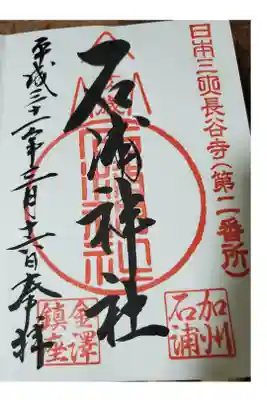 日本三大長谷寺(第二番所)
石浦神社
平成三十一年三月十六日奉拝
加州
石浦
金澤
鎮座